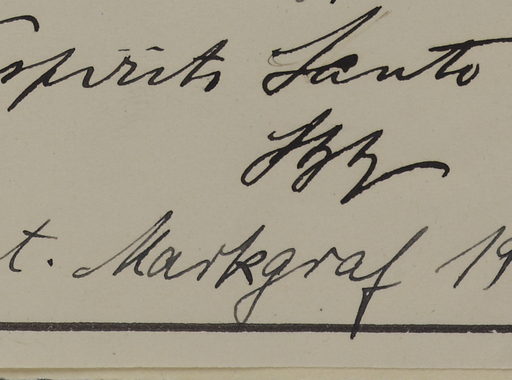 spirito Santo
t. Markgraf 19